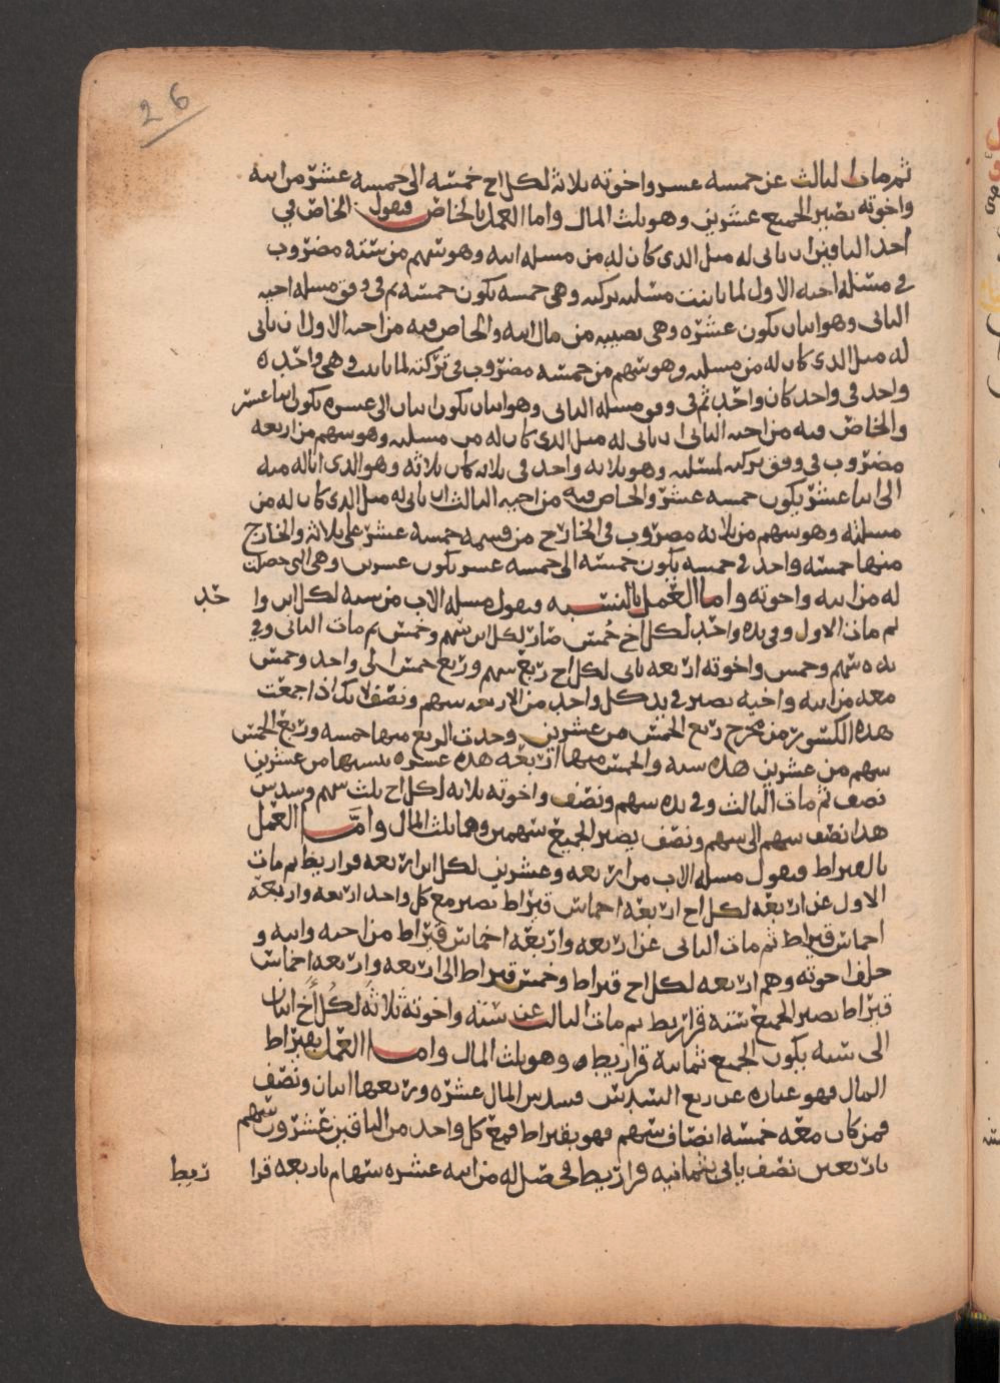 26
ثم مات الثالث عن خمسه عشر واخوته ثلاثة لكل اخ خمسه الى خمسه عشر من ابيه
واخوته يصير الجميع عشرين وهو ثلث المال واما العمل بالخاص فيقول الخاص في
احد الباقين ان ياتى له مثل الذى كان له من مسله ابيه وهو سهم من ستة مضروب
في مسئله اخيه الاول لما باينت مسئلته تركته وهى خمسه يكون خمسه ثم فى وفق مسله اخيه
الثانى وهو اثنان يكون عشره وهى نصيبه من مال ابيه والخاص فيه من اخيه الاول ان ياتى
له مثل الذى كان له من مسلته وهو سهم من خمسه مضروب فى تركته لما باينت وهى واحد ه
واحد فى واحد كان واحد ثم فى وفق مسله الثانى وهو اثنان يكون اثنان الى عشره يكون اثنا عشر
والخاص فيه من اخيه الثانى ان ياتى له مثل الذى كان له من مسلته وهو سهم من اربعه
مضروب في وفق تركته لمسئلته وهو ثلاثه واحد في ثلاثه كان ثلاثة وهو الذى اتاله منه
الى اثنا عشر يكون خمسه عشر والخاص فيه من اخيه الثالث ان ياتى له مثل الذى كان له من
مسلته وهو سهم من ثلاثه مضروب فى الخارج من قسمه خمسه عشر على ثلاثه والخارج
منها خمسه واحد في خمسه يكون خمسه الى خمسه عشر يكون عشرين وهى التى حصلت
له من ابيه واخوته واما العمل بالنسبه فيقول مسله الاب من سته لكل ابن وا حد
ثم مات الاول وفى يده واحد لكل اخ خمس صار لكل ابن سهم وخمس ثم مات الثانى وفي
يده سهم وخمس واخوته اربعه ياتى لكل اخ ربع سهم وربع خمس الى واحد وخمس
معه من ابيه واخيه يصير في يد كل واحد من الاربعه سهم ونصف لانك اذا جمعت
هذه الكسور من مخرج ربع الخمس من عشرين وجدت الربع منها خمسه وربع الخمس
سهم من عشرين هذه سته والخمس منها اربعه هذه عشره نسبتها من عشرين
نصف ثم مات الثالث وفي يده سهم ونصف واخوته ثلاثه لكل اخ ثلث سهم وسدس
هذا نصف سهم الى سهم ونصف يصير الجميع سهمين وهما ثلث المال واما العمل
بالقيراط فيقول مسله الاب من اربعه وعشرين لكل ابن اربعه قراريط ثم مات
الاول عن اربعه لكل اخ اربعه اخماس قيراط يصير مع كل واحد اربعه واربعه
اخماس قيراط ثم مات الثانى عن اربعه واربعه اخماس قيراط من اخيه وابيه و
خلف اخوته وهم اربعه لكل اخ قيراط وخمس قيراط الى اربعه واربعه اخماس
قيراط يصير الجميع سته قراريط ثم مات الثالث عن سته واخوته ثلاثة لكل اخ اثنان
الى سته يكون الجميع ثمانية قراريط ه وهو ثلث المال واما العمل بقيراط
المال فهو عباره عن ربع السدس فسدس المال عشره وربعها اثنان ونصف
فمن كان معه خمسه انصاف سهم فهو بقيراط فمع كل واحد من الباقين عشرون سهم
باربعين نصف ياتى بثمانيه قراريط فحصل له من ابيه عشره سهام باربعه قرا ريط